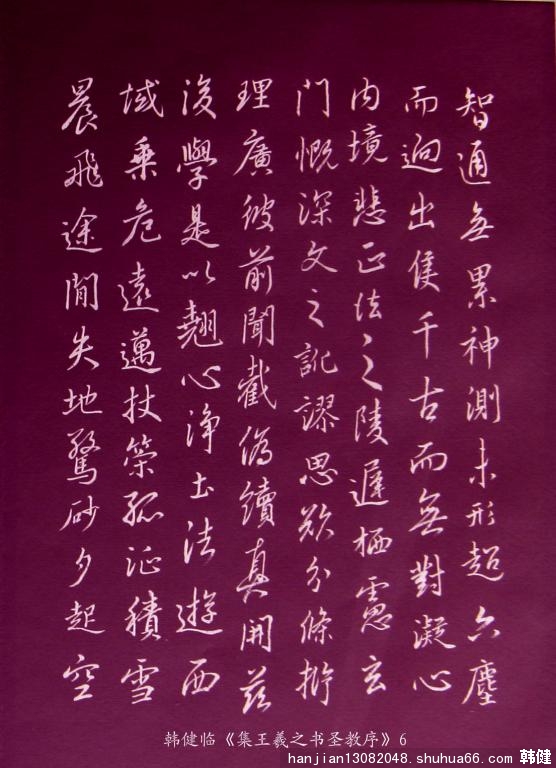 智通無累神測未形超六塵
而迥出隻千古而無對凝心
内境悲正法之陵遲栖慮玄
門慨深文之訛謬思欲分條析
理廣彼前聞截偽續真開茲
後學是以翹心淨土法遊西
域乗危遠邁杖策孤征積雪
晨飛途閒失地驚砂夕起空
韩健临《集王羲之书圣教序》6
hanjian13082048.shuhua66.com 韩健